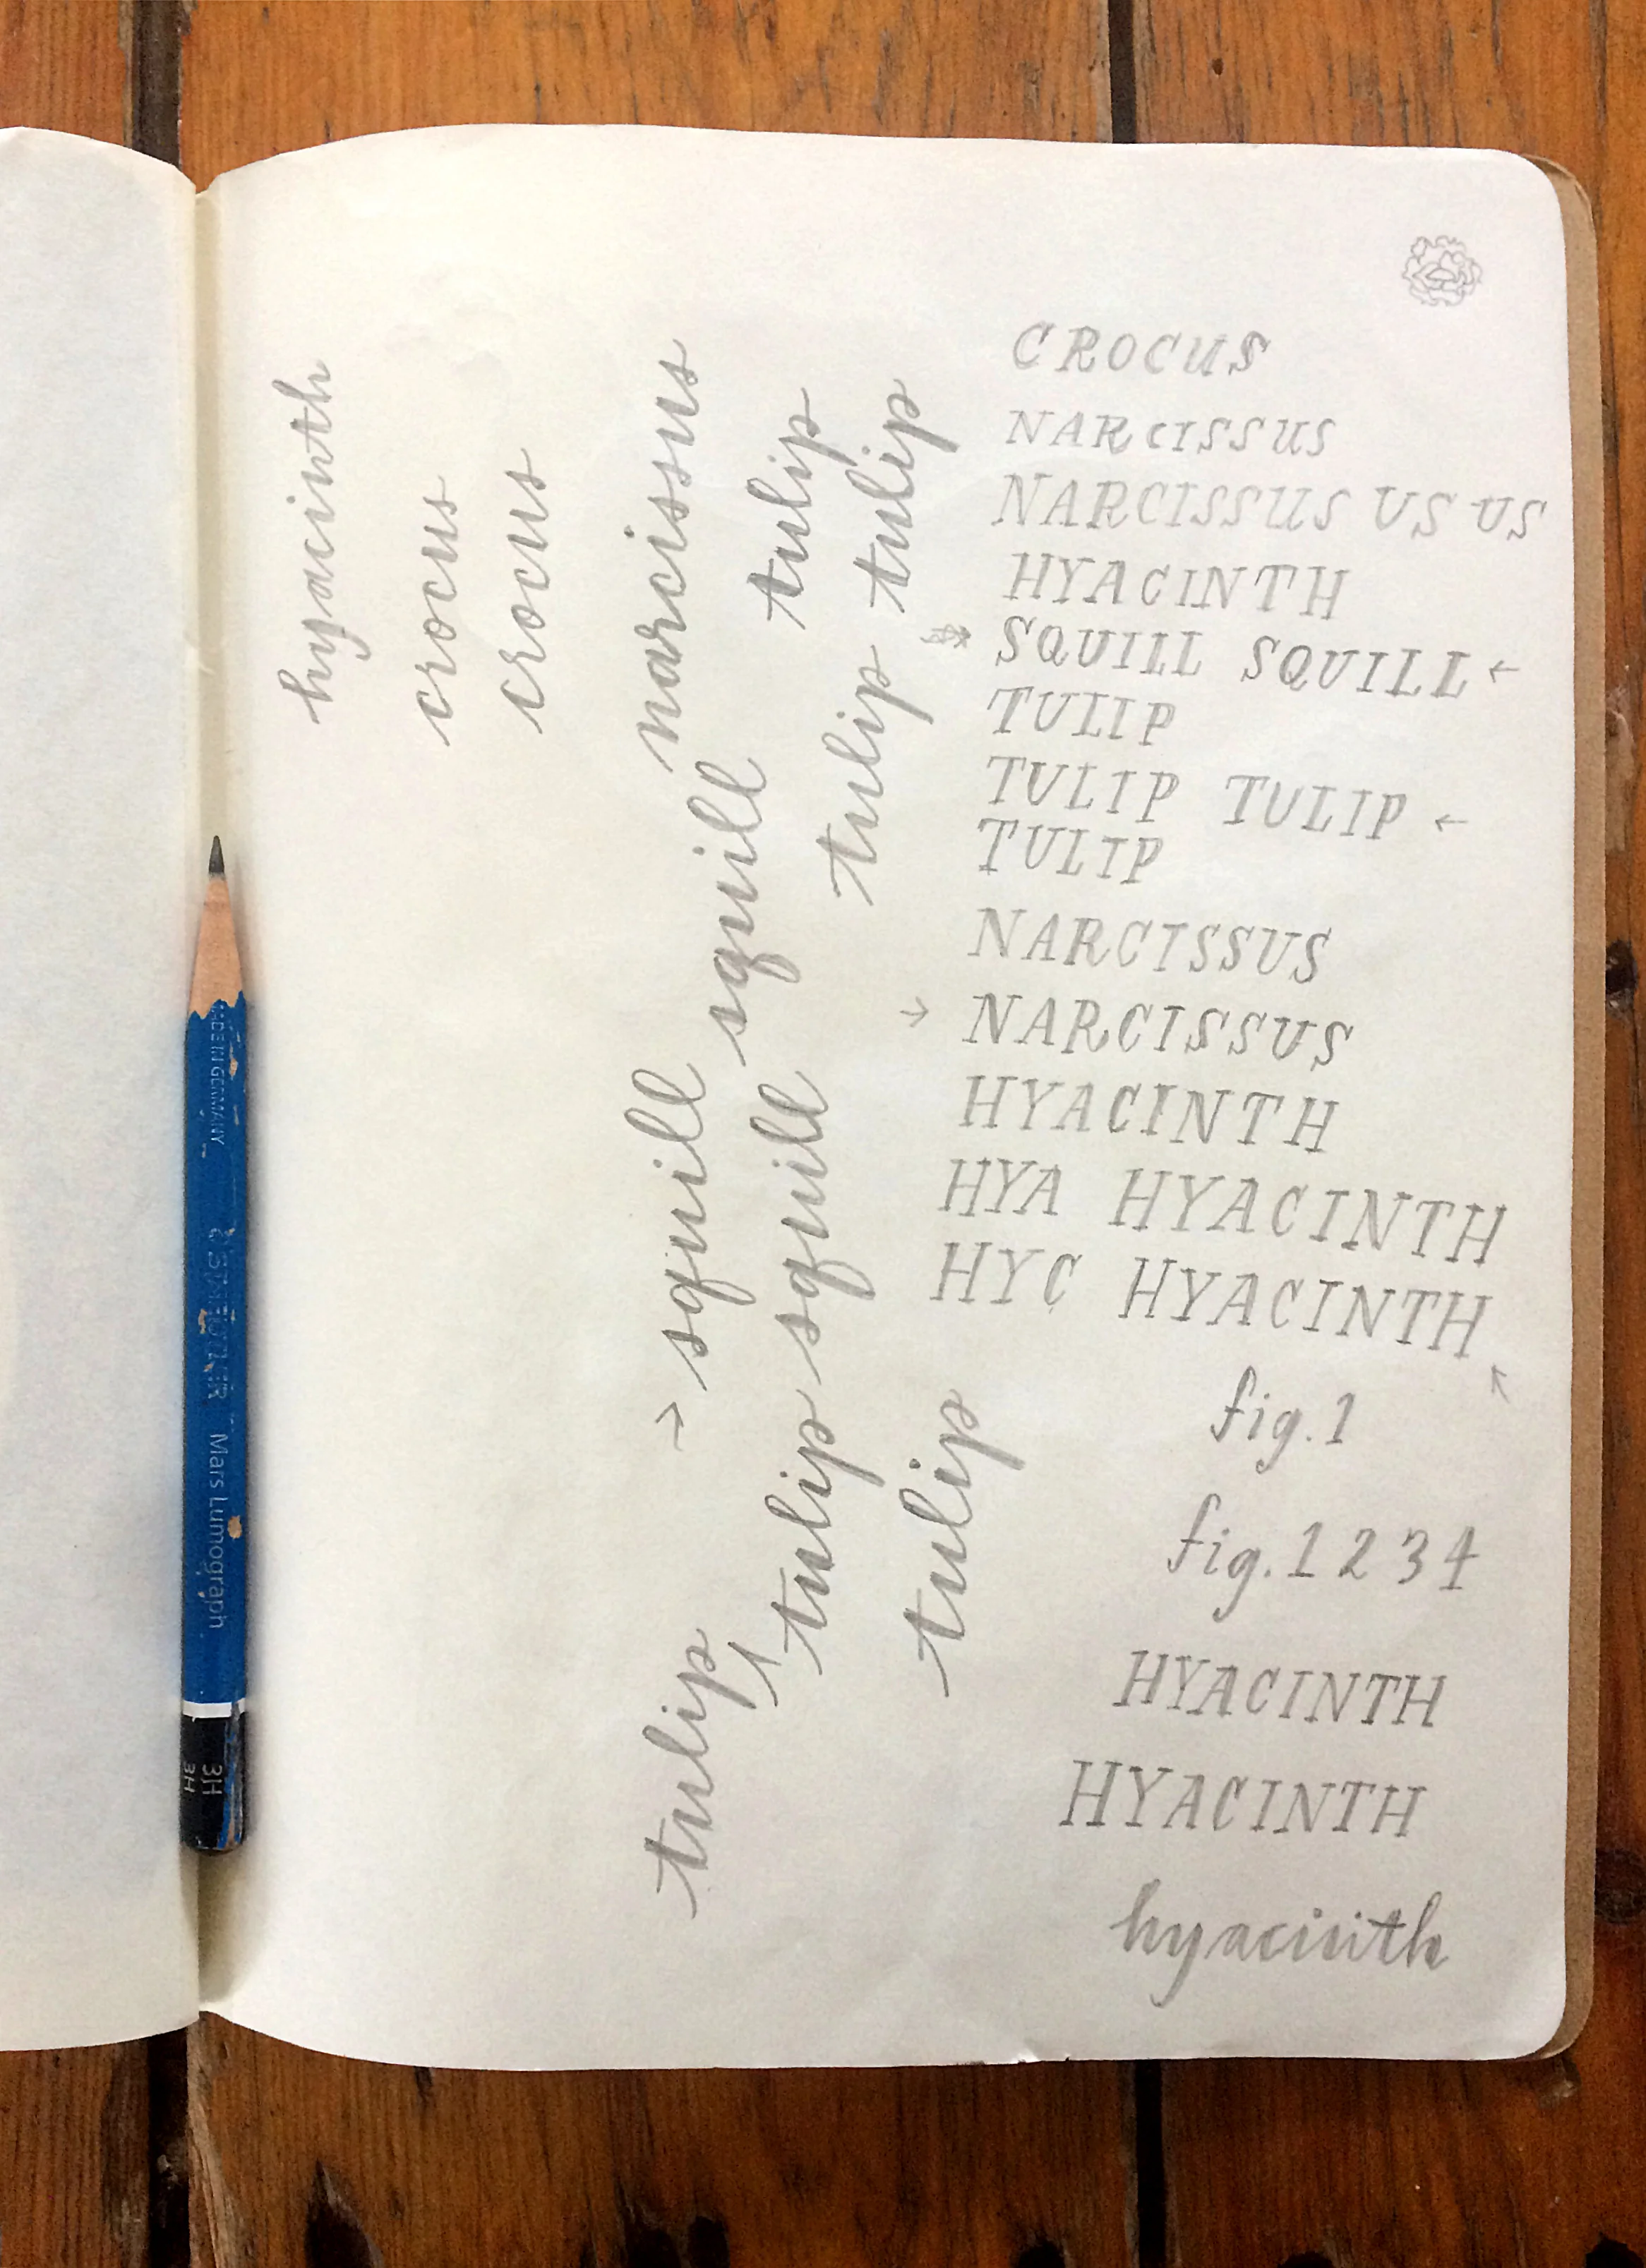 CROCUS
NARCISSUS
NARCISSUS US US
HYACINTH
SQUILL SQUILL ←
TULIP
TULIP TULIP ←
TULIP
NARCISSUS
→ NARCISSUS
HYACINTH
HYA HYACINTH
HYC HYACINTH
fig. 1
fig. 1 2 3 4
HYACINTH
HYACINTH
hyacinth
hyacinth
crocus
crocus
narcissus
→ squill
tulip
squill
tulip
squill
tulip
tulip
tulip
tulip
MADE IN GERMANY
STAEDTLER Mars Lumograph
3H
3H